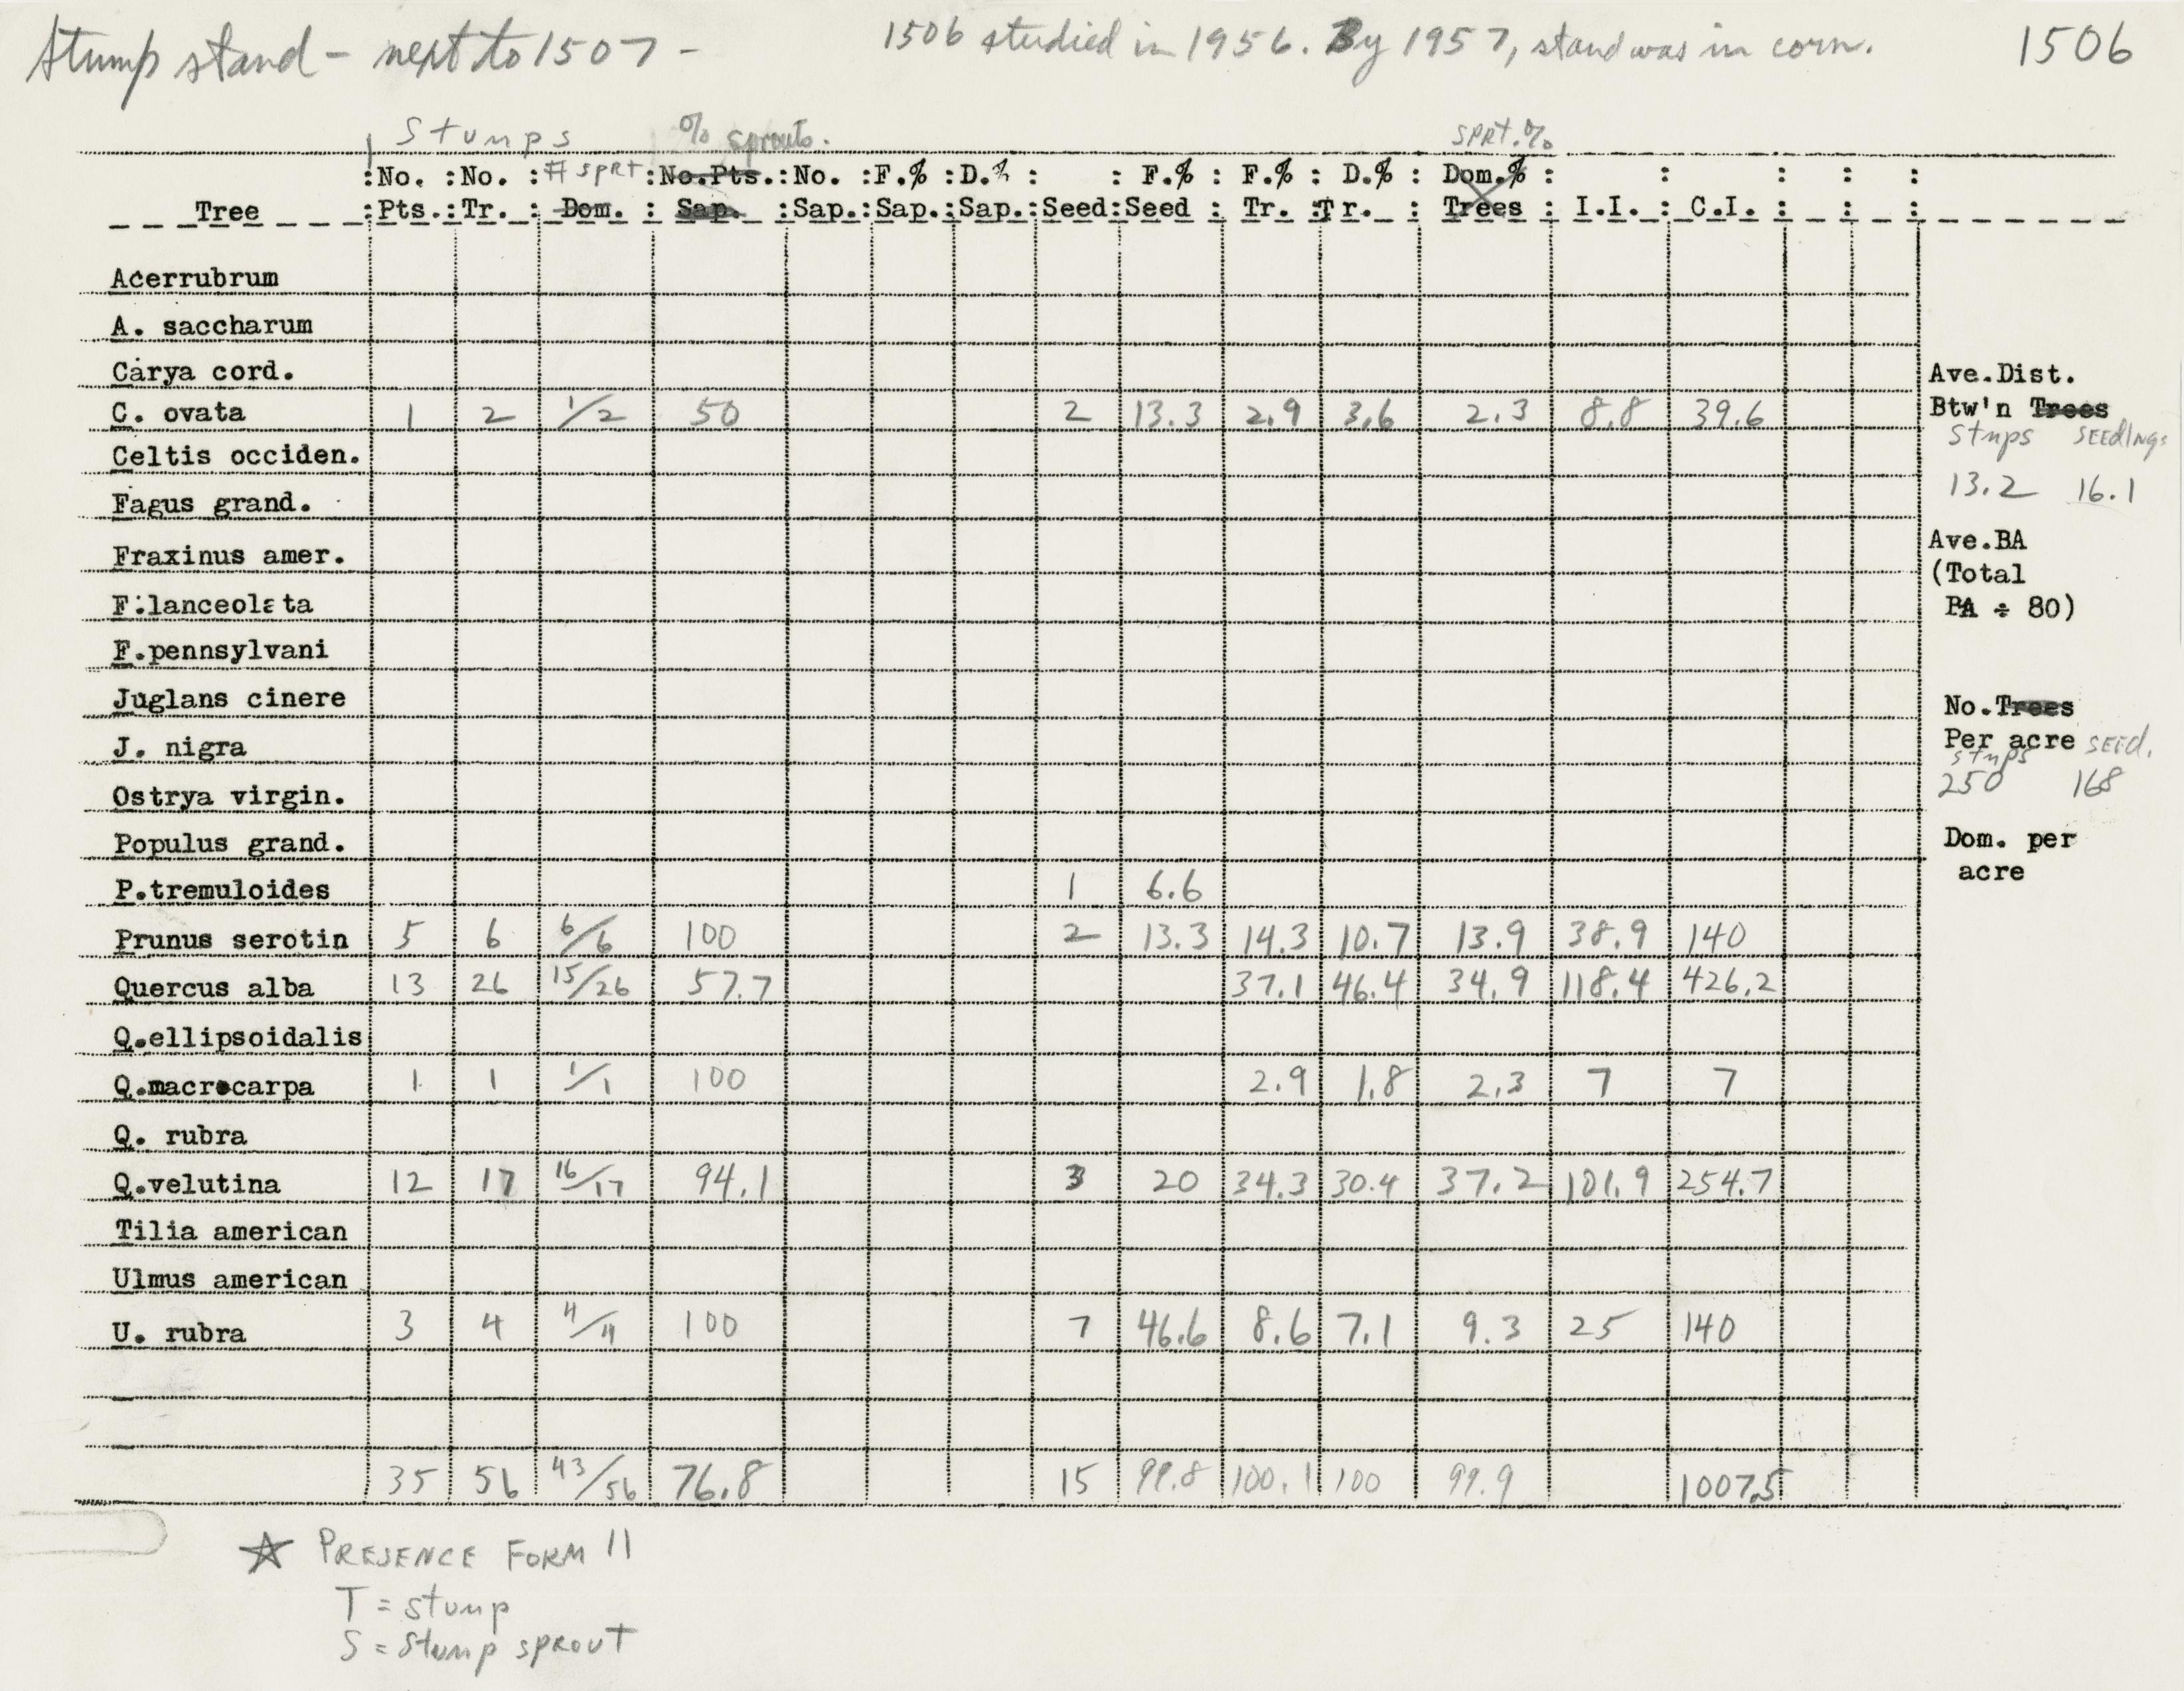 Stump stand - next to 1507 - 1506 studied in 1956. By 1957, stand was in corn. 1506
Stumps % sprouts. SPRT.%
:No. :No. :# SPRT :No.Pts.:No. :F.% :D.% : : F.% : F.% : D.% : Dom.% : : : : :
Tree :Pts.:Tr. : Dom. : Sap. :Sap.:Sap.:Sap.:Seed:Seed : Tr. :Tr. : Trees : I.I. : C.I. : : :
Acerrubrum
A. saccharum
Carya cord.
Ave.Dist.
C. ovata 1 2 1/2 50 2 13.3 2.9 3.6 2.3 8.8 39.6
Btw'n Trees
Stmps SEEdlings
Celtis occiden.
13.2 16.1
Fagus grand.
Ave.BA
Fraxinus amer.
(Total
F.lanceolata
BA ÷ 80)
F.pennsylvani
Juglans cinere
No.Trees
J. nigra
Per acre SEEd.
stmps
250 168
Ostrya virgin.
Populus grand.
Dom. per
acre
P.tremuloides 1 6.6
Prunus serotin 5 6 6/6 100 2 13.3 14.3 10.7 13.9 38.9 140
Quercus alba 13 26 15/26 57.7 37.1 46.4 34.9 118.4 426.2
Q.ellipsoidalis
Q.macrocarpa 1 1 1/1 100 2.9 1.8 2.3 7 7
Q. rubra
Q.velutina 12 17 16/17 94.1 3 20 34.3 30.4 37.2 101.9 254.7
Tilia american
Ulmus american
U. rubra 3 4 4/4 100 7 46.6 8.6 7.1 9.3 25 140
35 56 43/56 76.8 15 99.8 100.1 100 99.9 1007.5
☆ PRESENCE FORM 11
T = stump
S = Stump SPROUT